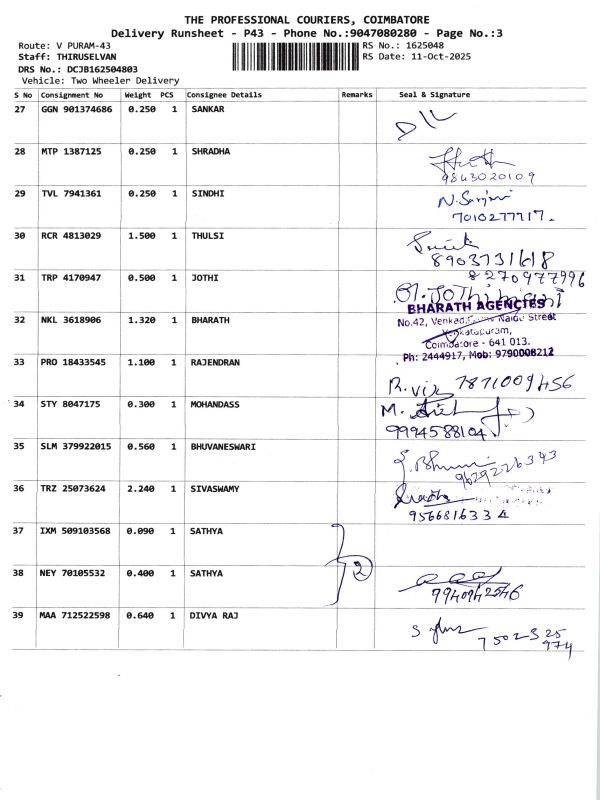 THE PROFESSIONAL COURIERS, COIMBATORE
Delivery Runsheet - P43 - Phone No.:9047080280 - Page No.:3
Route: V PURAM-43 RS No.: 1625048
Staff: THIRUSELVAN RS Date: 11-Oct-2025
DRS No.: DCJB162504803
Vehicle: Two Wheeler Delivery
S No Consignment No Weight PCS Consignee Details Remarks Seal & Signature
27 GGN 901374686 0.250 1 SANKAR
28 MTP 1387125 0.250 1 SHRADHA
9843020109
29 TVL 7941361 0.250 1 SINDHI
7010277717.
30 RCR 4813029 1.500 1 THULSI
8903731618
31 TRP 4170947 0.500 1 JOTHI
8270977996
32 NKL 3618906 1.320 1 BHARATH
BHARATH AGENCIES
No.42, Naidu Street
Venkatapuram,
Coimbatore - 641 013.
Ph: 2444917, Mob: 9790008212
33 PRO 18433545 1.100 1 RAJENDRAN
7871009456
34 STY 8047175 0.300 1 MOHANDASS
9994588104
35 SLM 379922015 0.560 1 BHUVANESWARI
9629226343
36 TRZ 25073624 2.240 1 SIVASWAMY
9566816334
37 IXM 509103568 0.090 1 SATHYA
2
38 NEY 70105532 0.400 1 SATHYA
9940942546
39 MAA 712522598 0.640 1 DIVYA RAJ
7502325
974